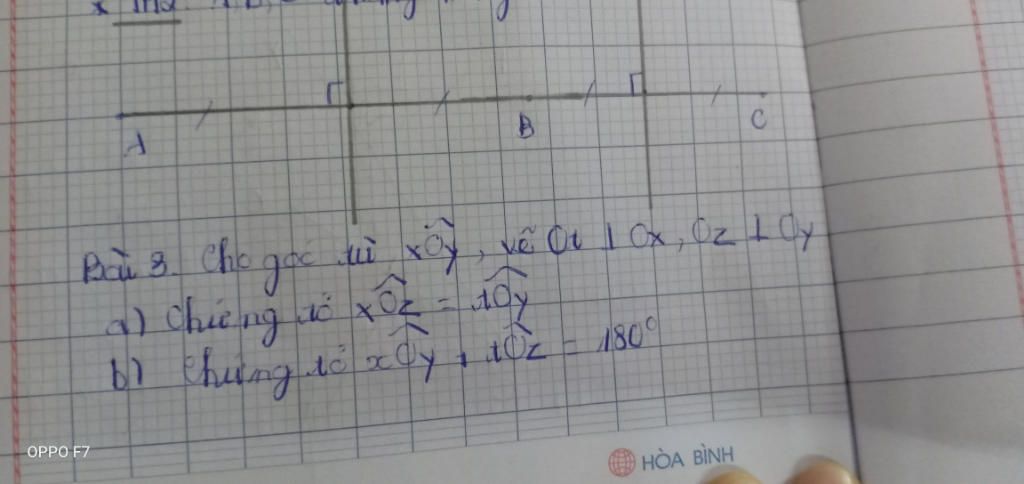 A
B
C
Bài 3. Cho góc tù xÔy, vẽ Ot ⊥ Ox, Oz ⊥ Oy
a) Chứng tỏ xÔz = tÔy
b) Chứng tỏ xÔy + tÔz = 180°
OPPO F7
HÒA BÌNH